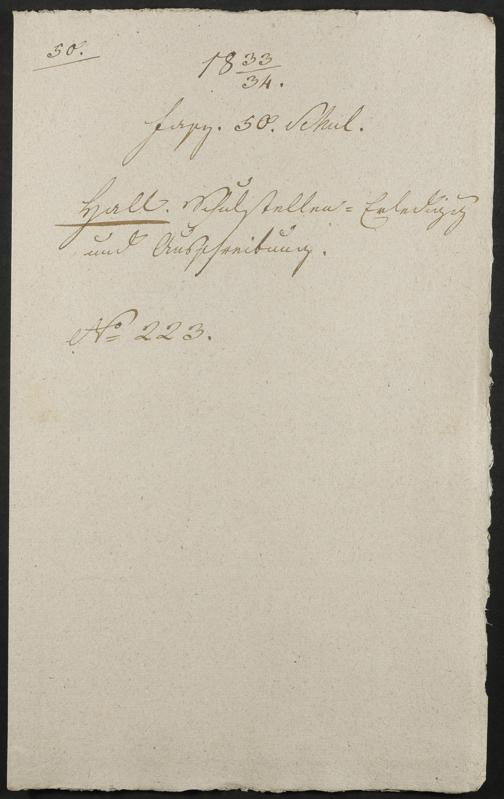 50.
18 33/34.
Fasz. 50. Schul.
Hall. Schulstellen-Erledigung
und Ausschreibung.
No 223.